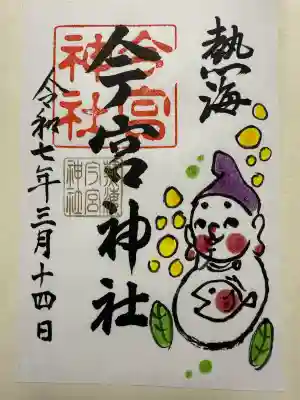 熱海
今宮神社
令和七年三月十四日
今宮
神社
今宮
神社